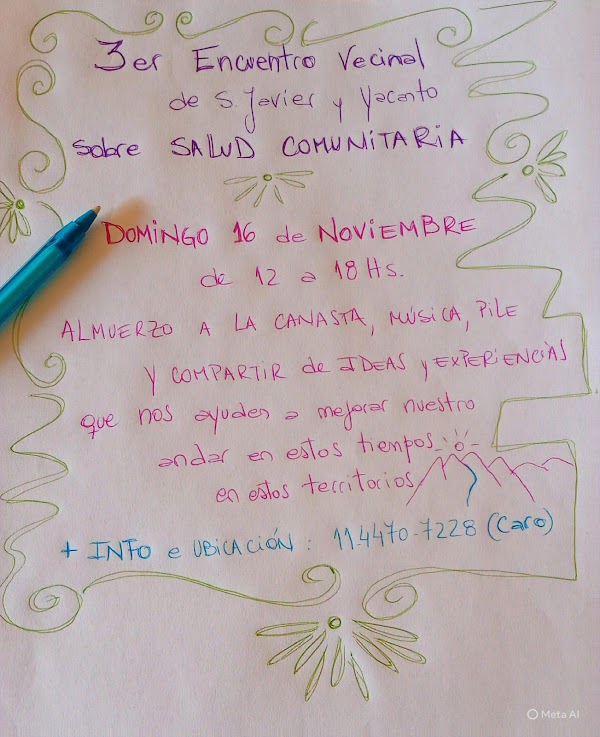 3er Encuentro Vecinal
de S. Javier y Yacanto
sobre SALUD COMUNITARIA
DOMINGO 16 de NOVIEMBRE
de 12 a 18 Hs.
ALMUERZO A LA CANASTA, MÚSICA, PILE
Y COMPARTIR de IDEAS y EXPERIENCIAS
que nos ayuden a mejorar nuestro
andar en estos tiempos
en estos territorios
+ INFO e UBICACIÓN: 11.4470-7228 (Caro)
Meta AI